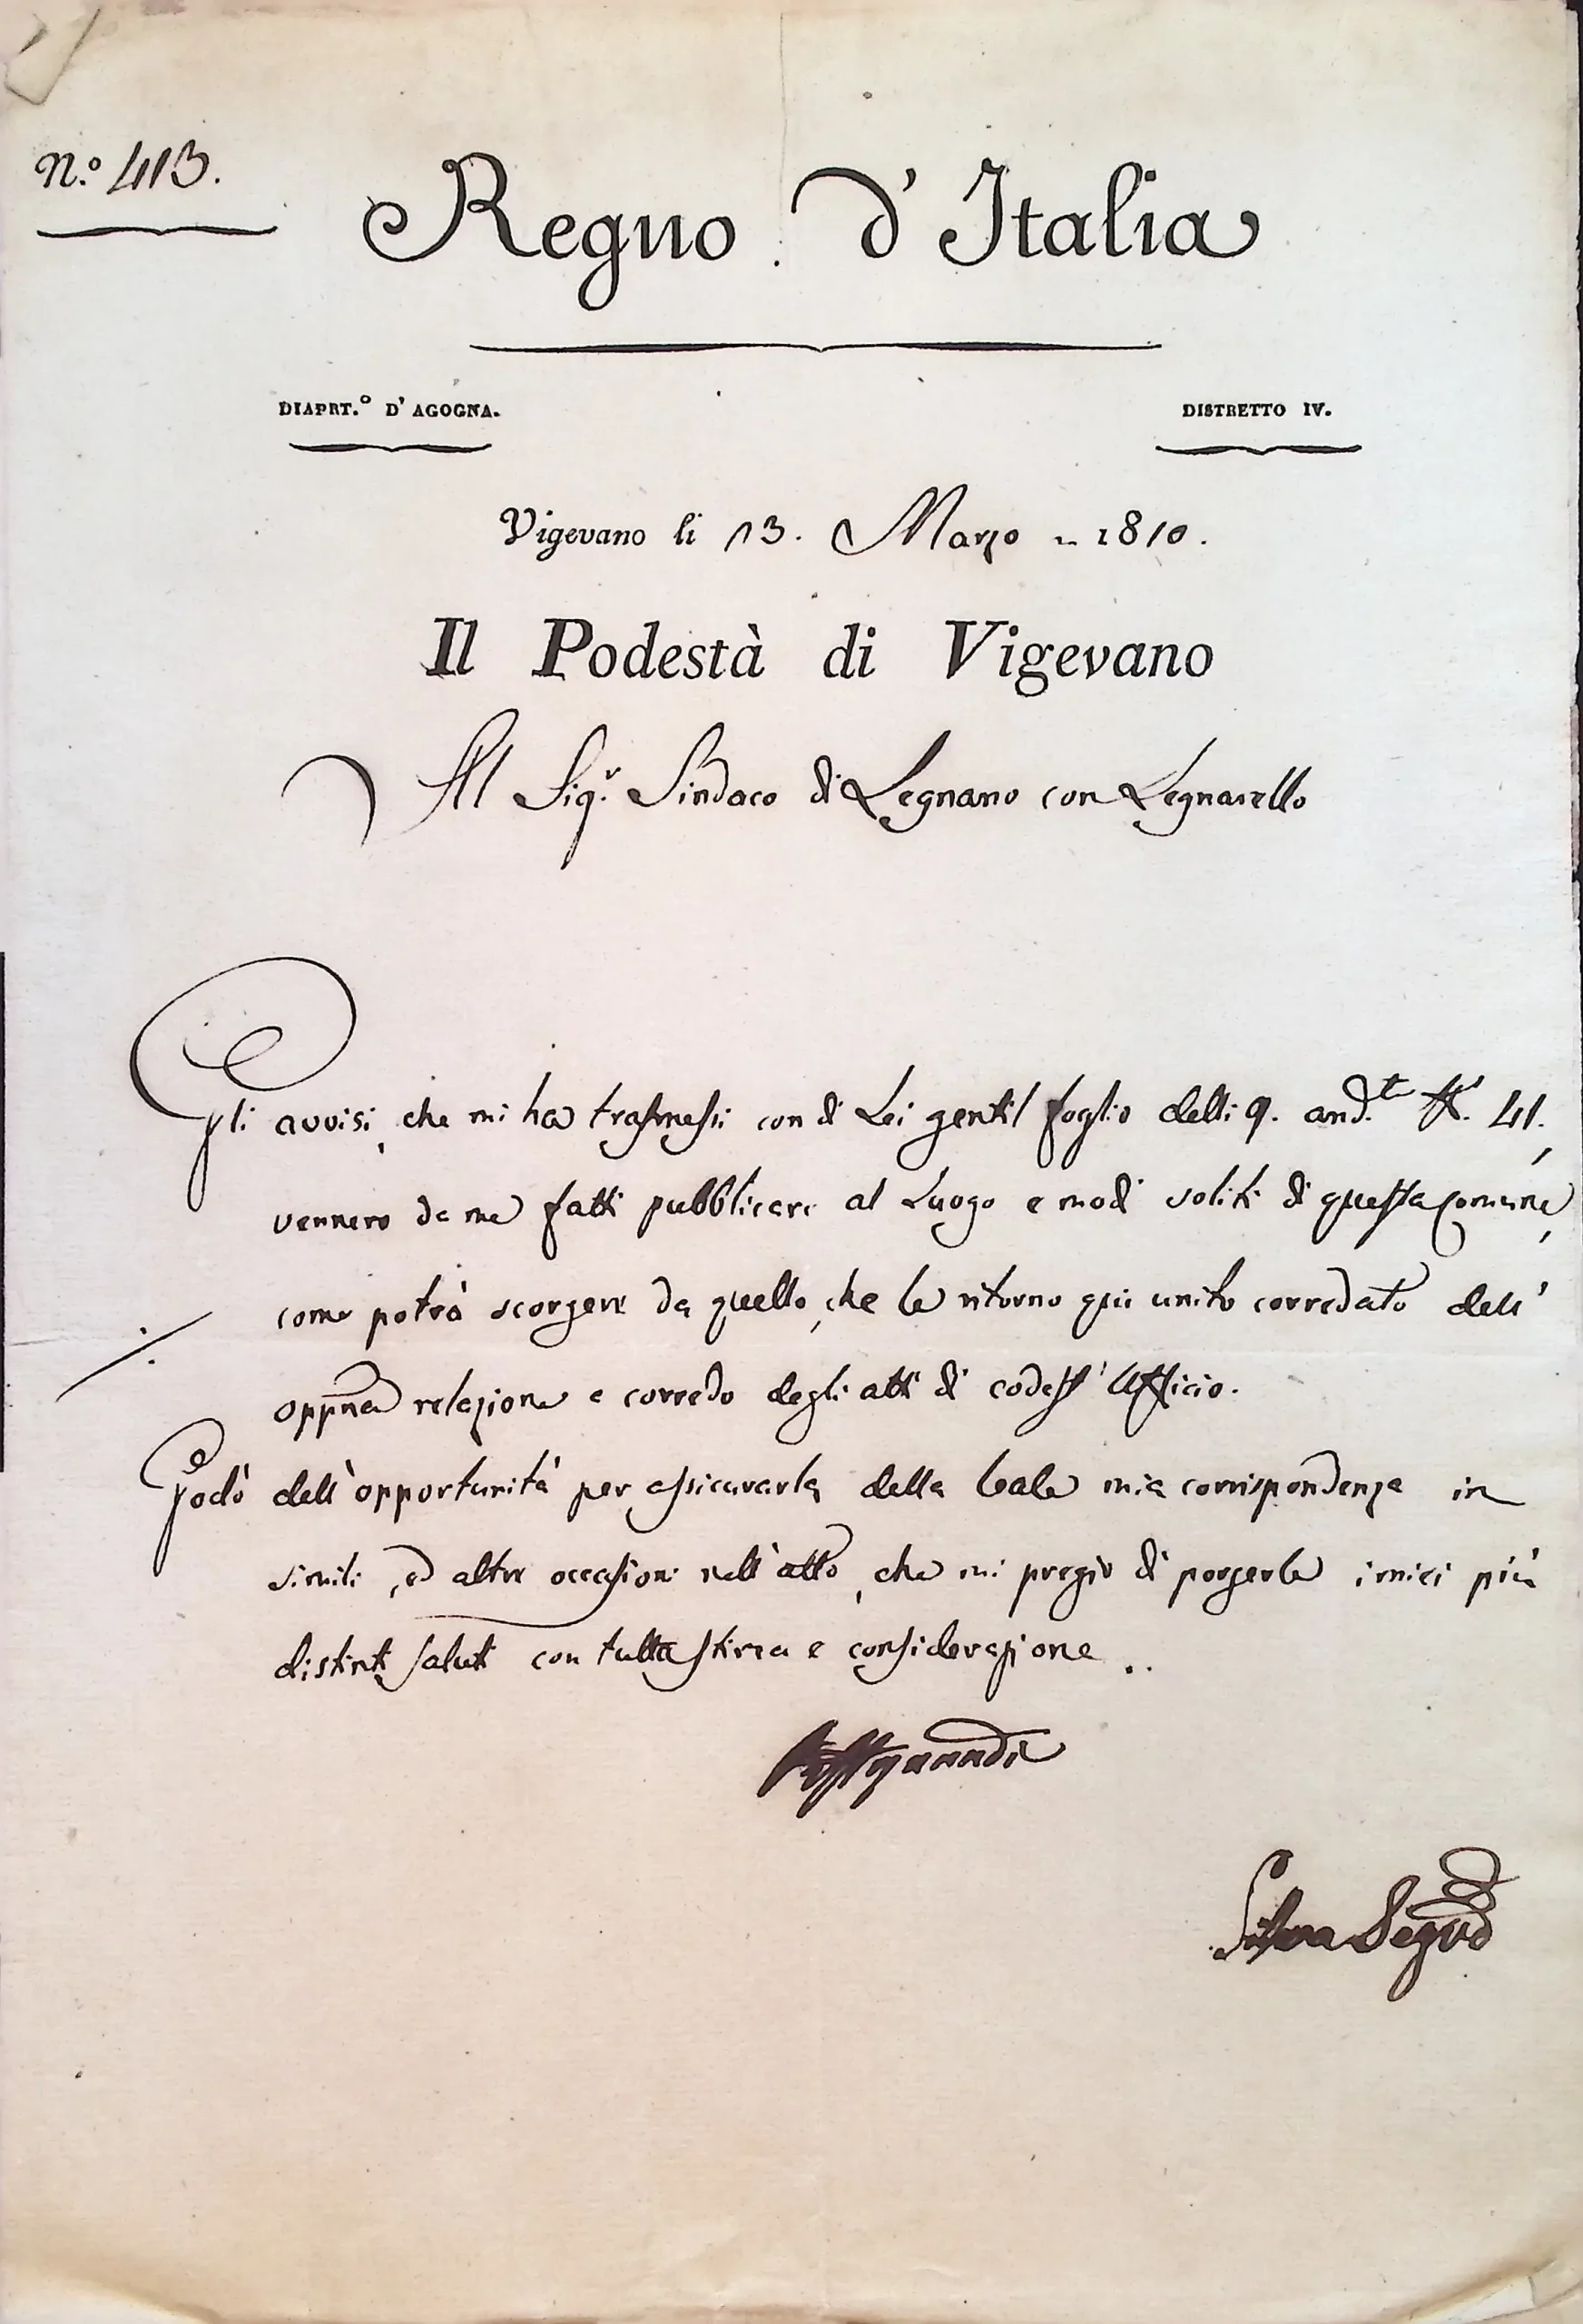 N.o 413.
Regno d'Italia
DIAPRT.o D' AGOGNA.
DISTRETTO IV.
Vigevano li 13. Marzo 1810.
Il Podestà di Vigevano
Al Sig.r Sindaco di Legnano con Legnarello
Gli avvisi, che mi ha trasmessi con di Lei gentil foglio delli 9. and.te N. 41.,
vennero da me fatti pubblicare al Luogo e modi soliti di questa Comune,
come potrà scorgere da quello, che le ritorno qui unito corredato dell'
oppna relazione e corredo degli atti di codest' Ufficio.
Godo dell'opportunità per assicurarla della leale mia corrispondenza in
simili, ed altre occasioni nell'atto, che mi pregio di porgerle i miei più
distinti saluti con tutta stima e considerazione..
Silva Seg.